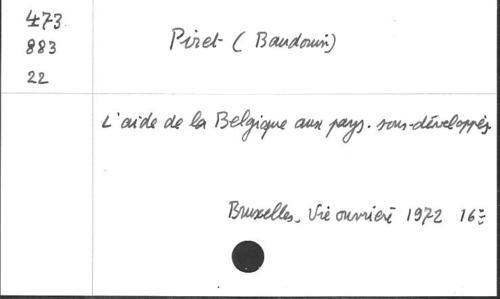 473
883
22
Piret (Baudouin)
L'aide de la Belgique aux pays. sous-développés
Bruxelles, Vie ouvrière 1972 16°